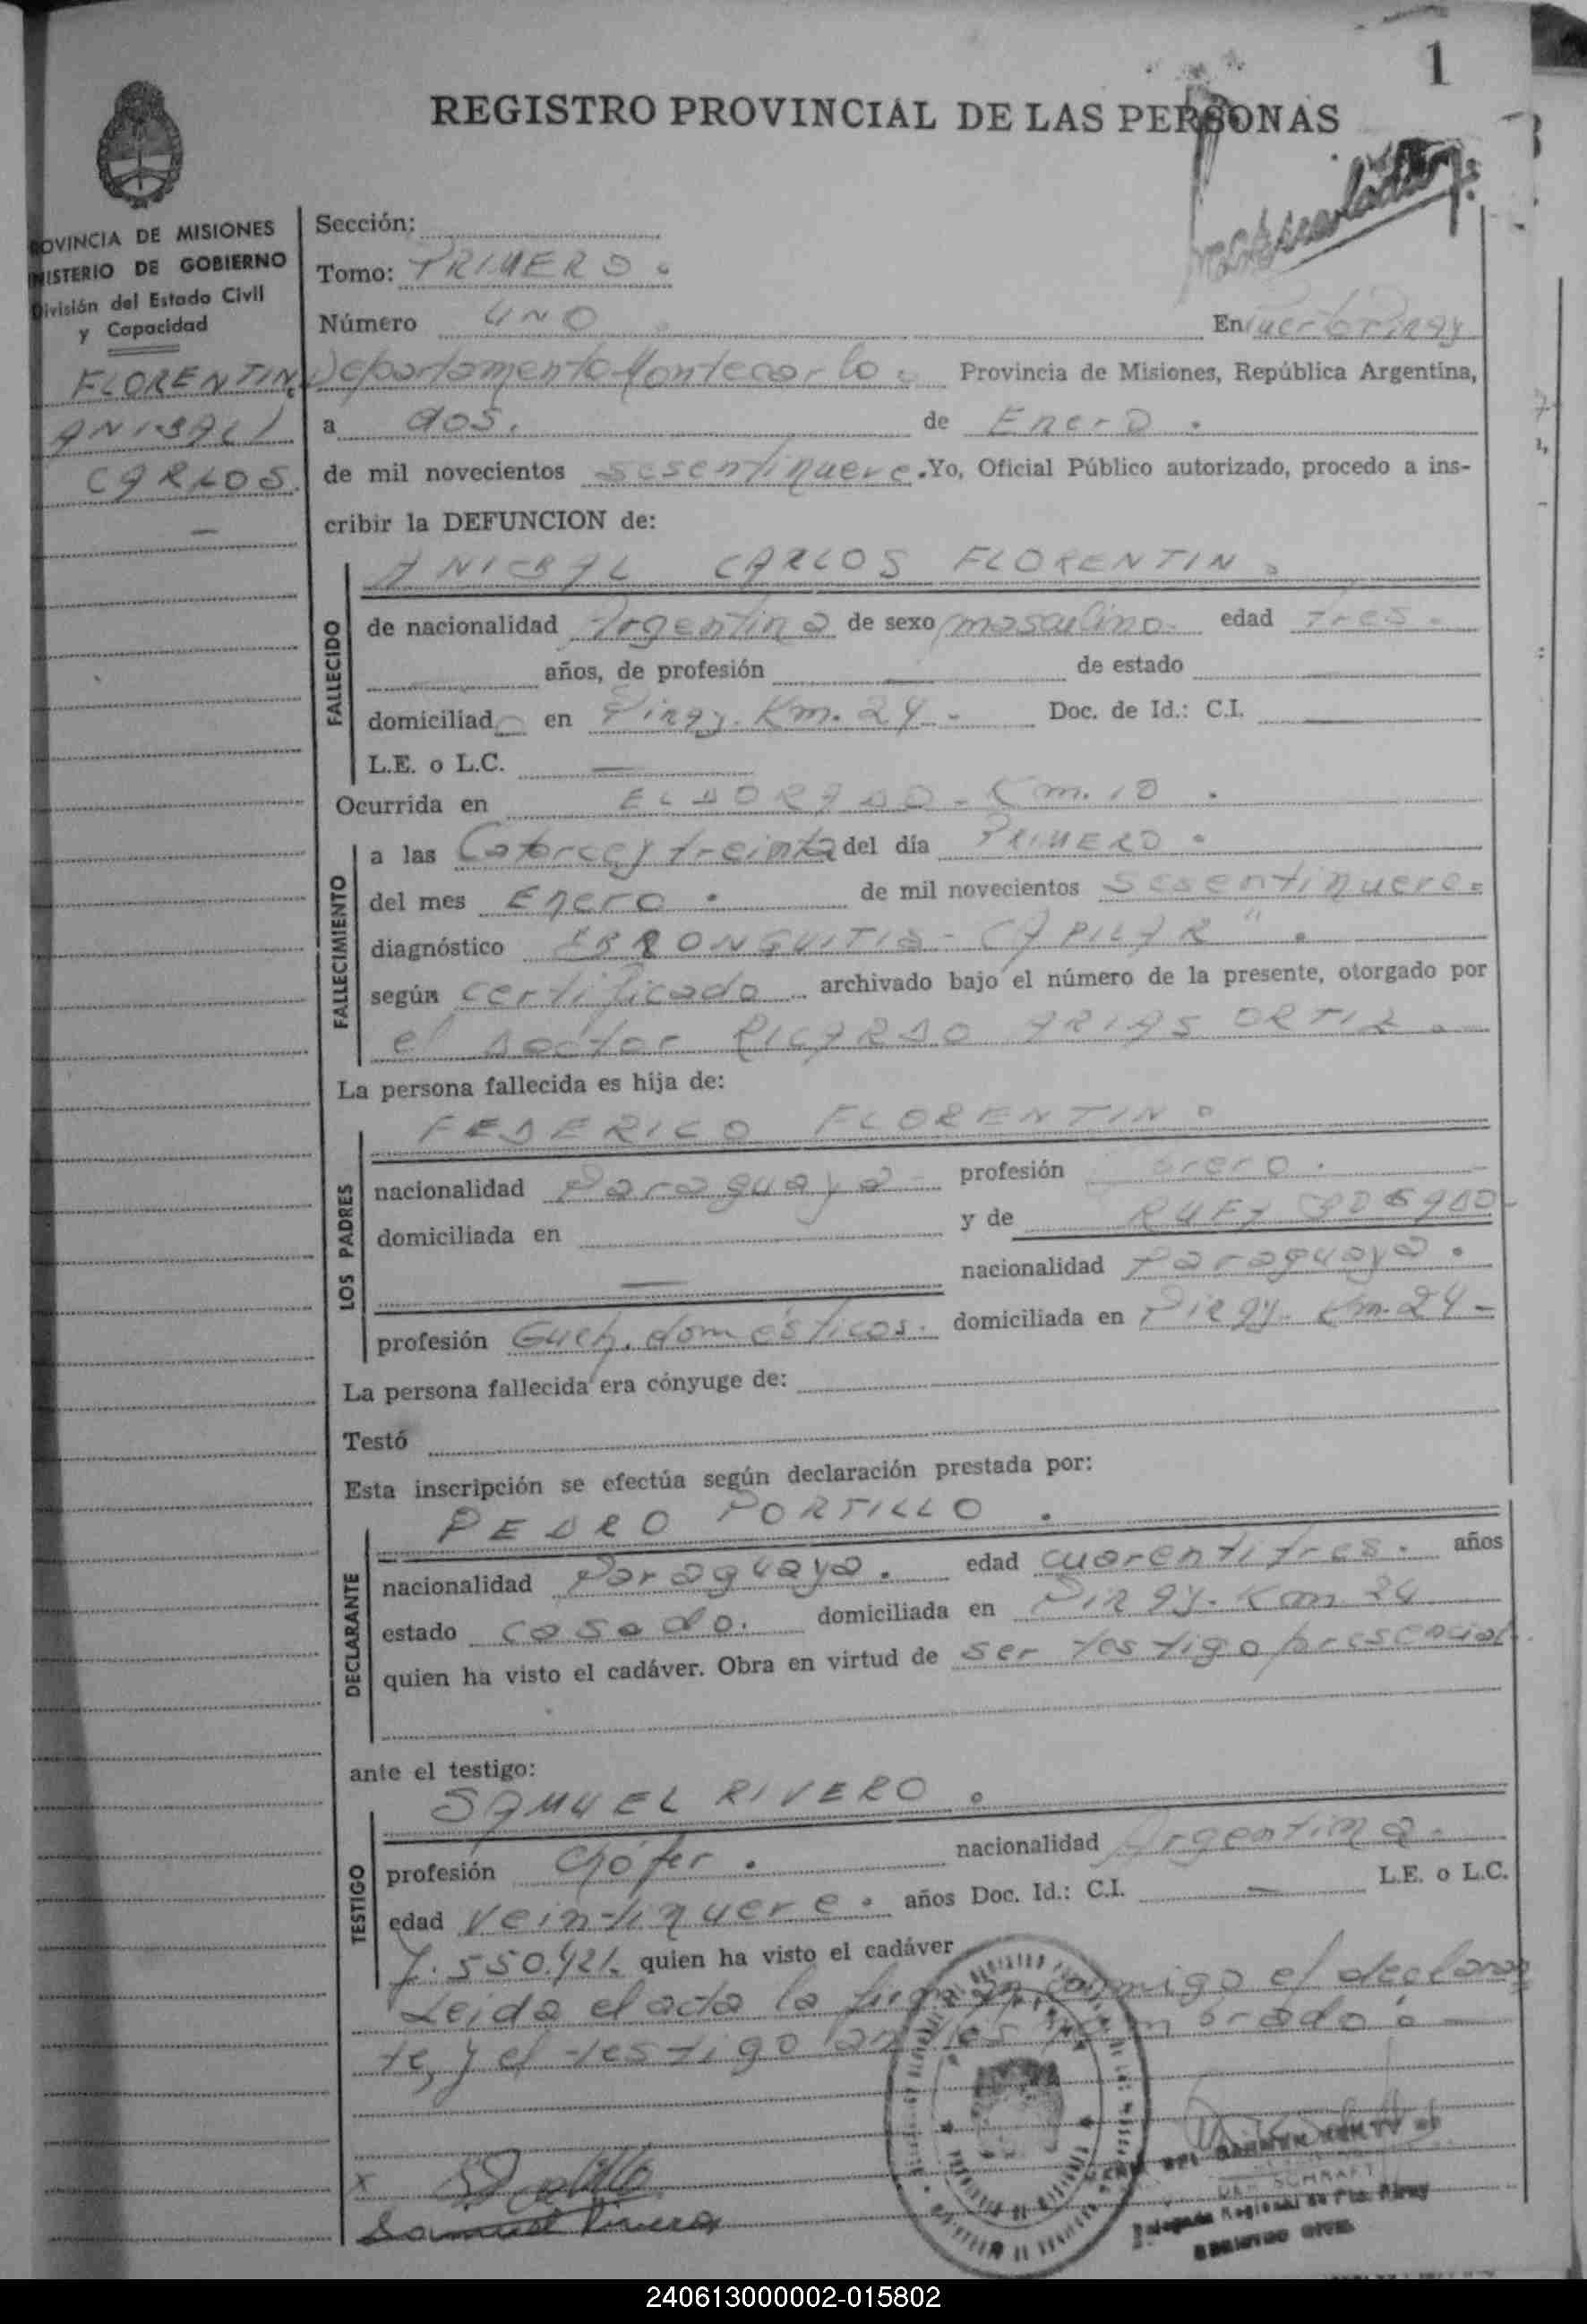 1
REGISTRO PROVINCIAL DE LAS PERSONAS
PROVINCIA DE MISIONES
MINISTERIO DE GOBIERNO
División del Estado Civil
y Capacidad
FLORENTIN,
ANIBAL
CARLOS.
Sección:
Tomo: PRIMERO.
Número UNO En Puerto Piray
Departamento Montecarlo. Provincia de Misiones, República Argentina,
a dos. de Enero.
de mil novecientos sesentinueve. Yo, Oficial Público autorizado, procedo a ins-
cribir la DEFUNCION de:
ANIBAL CARLOS FLORENTIN.
FALLECIDO
de nacionalidad Argentina de sexo masculino. edad tres.
años, de profesión — de estado
domiciliado en Piray. Km. 24 - Doc. de Id.: C.I. —
L.E. o L.C. —
Ocurrida en ELDORADO - Km. 10.
FALLECIMIENTO
a las Catorce y treinta del día PRIMERO.
del mes Enero. de mil novecientos sesentinueve=
diagnóstico CAPILAR".
según certificado archivado bajo el número de la presente, otorgado por
el Doctor RICARDO ARIAS ORTIZ.
La persona fallecida es hija de:
FEDERICO FLORENTIN.
LOS PADRES
nacionalidad Paraguaya - profesión obrero.
domiciliada en — y de RUFA
nacionalidad Paraguaya.
profesión Queh. domésticos. domiciliada en Piray. Km. 24 -
La persona fallecida era cónyuge de:
Testó
Esta inscripción se efectúa según declaración prestada por:
PEDRO PORTILLO.
DECLARANTE
nacionalidad Paraguaya. edad cuarentitres. años
estado casado. domiciliada en Piray. Km 24
quien ha visto el cadáver. Obra en virtud de ser testigo presencial.
ante el testigo:
SAMUEL RIVERO.
TESTIGO
profesión Chófer. nacionalidad Argentina.
edad veintinueve. años Doc. Id.: C.I. — L.E. o L.C.
7.550.421. quien ha visto el cadáver
Leida el acta la firman conmigo el declaran
te, y el testigo antes nombrado.
x Portillo
Samuel Rivero
SCHRAFT
Delegada Regional de Pto. Piray
REGISTRO CIVIL
240613000002-015802